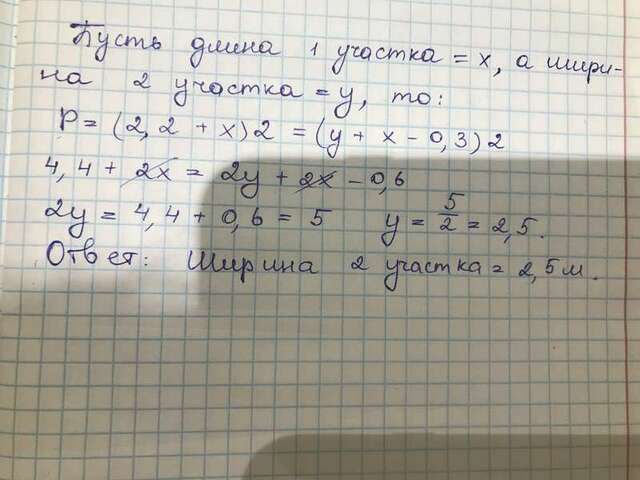 Пусть длина 1 участка = x, а шири-
на 2 участка = y, то:
P = (2,2 + x)2 = (y + x - 0,3)2
4,4 + 2x = 2y + 2x - 0,6
2y = 4,4 + 0,6 = 5 y = 5/2 = 2,5.
Ответ: Ширина 2 участка = 2,5 м.